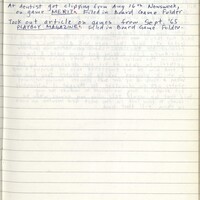 At dentist got clipping from Aug 16th Newsweek,
on game "MERIT". Filled in Board Game Folder.
Took out article on games from Sept. '65
PLAYBOY MAGAZINE. Filed in Board Game Folder.